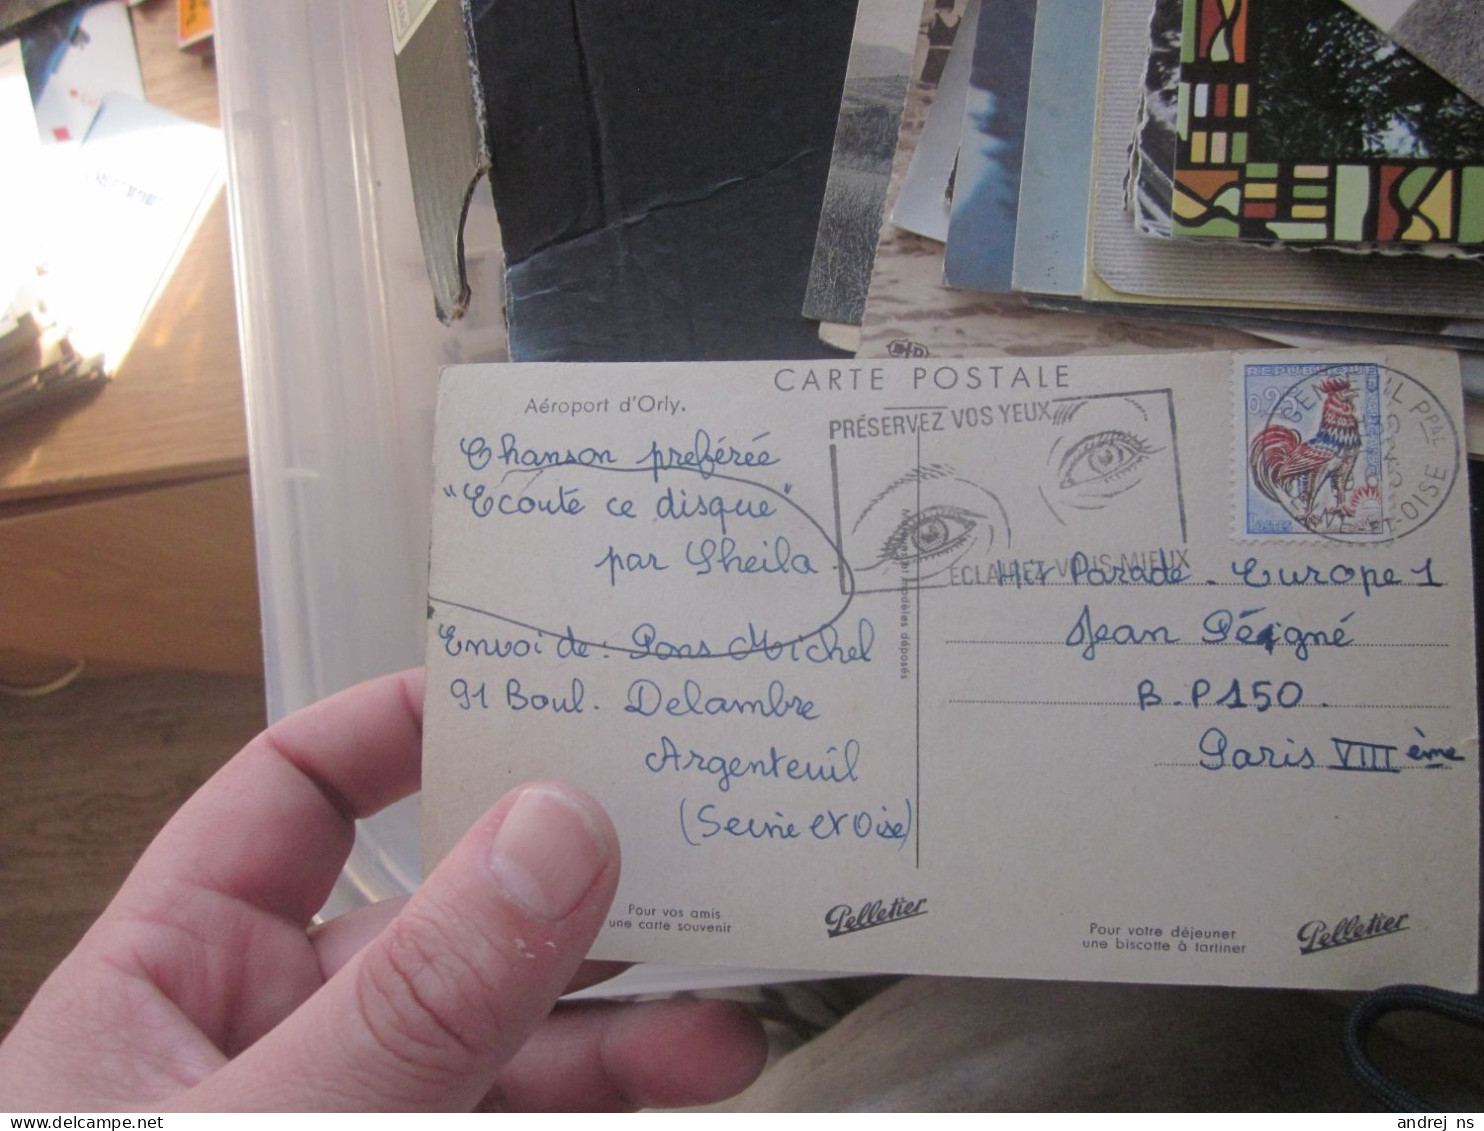 CARTE POSTALE
Aéroport d'Orly.
Chanson preférée
"Ecoute ce disque"
par Sheila.
Envoi de : Pons Michel
91 Boul. Delambre
Argenteuil
(Seine et Oise)
PRÉSERVEZ VOS YEUX
ECLAIREZ VOUS MIEUX
REPUBLIQUE
0,25
POSTES
PPAL
ET-OISE
Hit Parade - Europe 1
Jean Péigné
B.P 150.
Paris VIII ème
modèles déposés
Pour vos amis
une carte souvenir
Pelletier
Pour votre déjeuner
une biscotte à tartiner
Pelletier
andrej ns